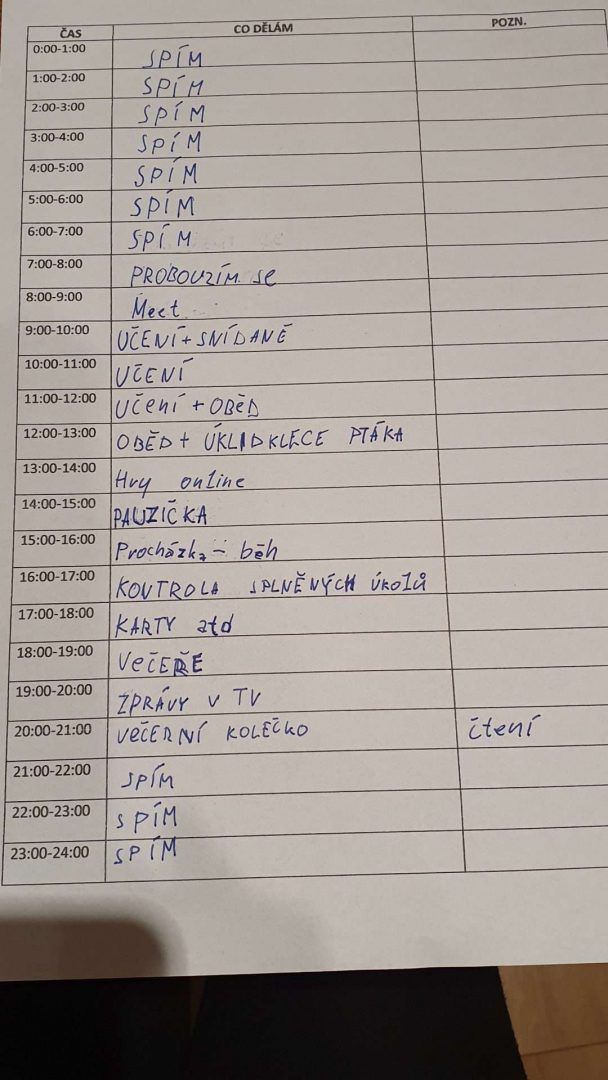 ČAS CO DĚLÁM POZN.
0:00-1:00 SPÍM
1:00-2:00 SPÍM
2:00-3:00 SPÍM
3:00-4:00 SPÍM
4:00-5:00 SPÍM
5:00-6:00 SPÍM
6:00-7:00 SPÍM
7:00-8:00 PROBOUZÍM se
8:00-9:00 Meet
9:00-10:00 UČENÍ + SNÍDANĚ
10:00-11:00 UČENÍ
11:00-12:00 Učení + OBĚD
12:00-13:00 OBĚD + ÚKLID KLECE PTÁKA
13:00-14:00 Hry online
14:00-15:00 PAUZIČKA
15:00-16:00 Procházka - běh
16:00-17:00 KONTROLA SPLNĚNÝCH ÚKOLŮ
17:00-18:00 KARTY atd
18:00-19:00 VEČEŘE
19:00-20:00 ZPRÁVY V TV
20:00-21:00 VEČERNÍ KOLEČKO čtení
21:00-22:00 SPÍM
22:00-23:00 SPÍM
23:00-24:00 SPÍM